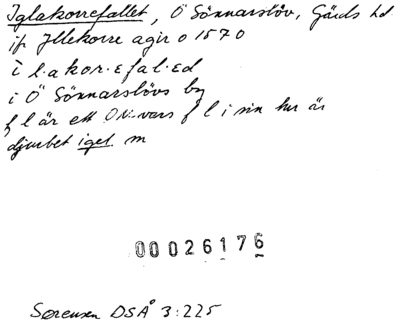 Iglakorrefallet, Ö Sönnarslöv, Gärds hd
jfr Illekorre agir o 1570
i l.a kor.e fal.ed
i Ö Sönnarslövs by
f l är ett ON vars f l i sin tur är
djurbet igel m
00026176
Sørensen DSÅ 3:225